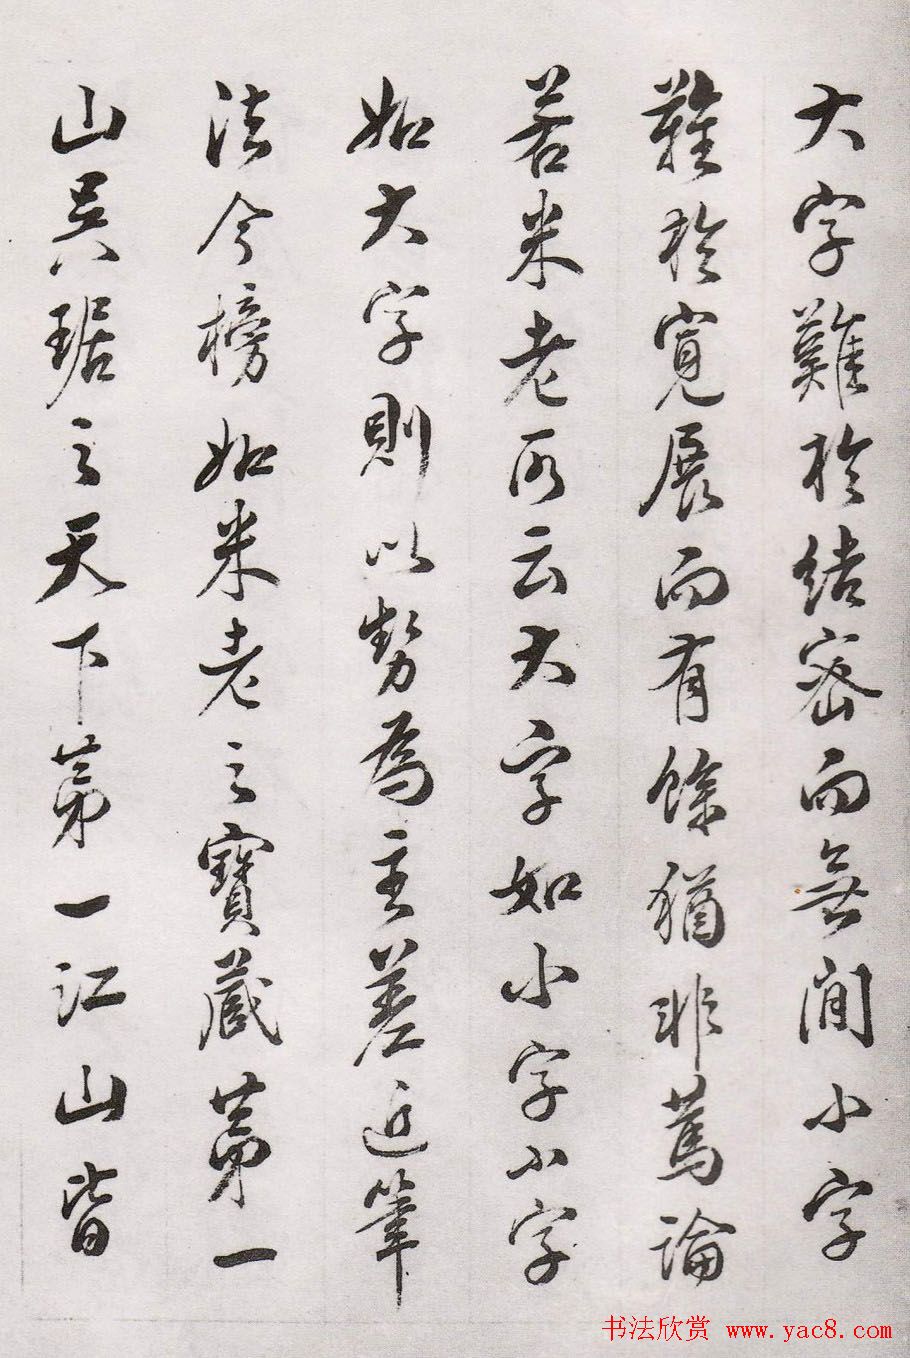 大字難於結密而無間小字
難於寬展而有餘猶非篤論
若米老所云大字如小字小字
如大字則以勢為主差近筆
法今榜如米老之寶藏第一
山吳琚之天下第一江山皆
书法欣赏 www.yac8.com